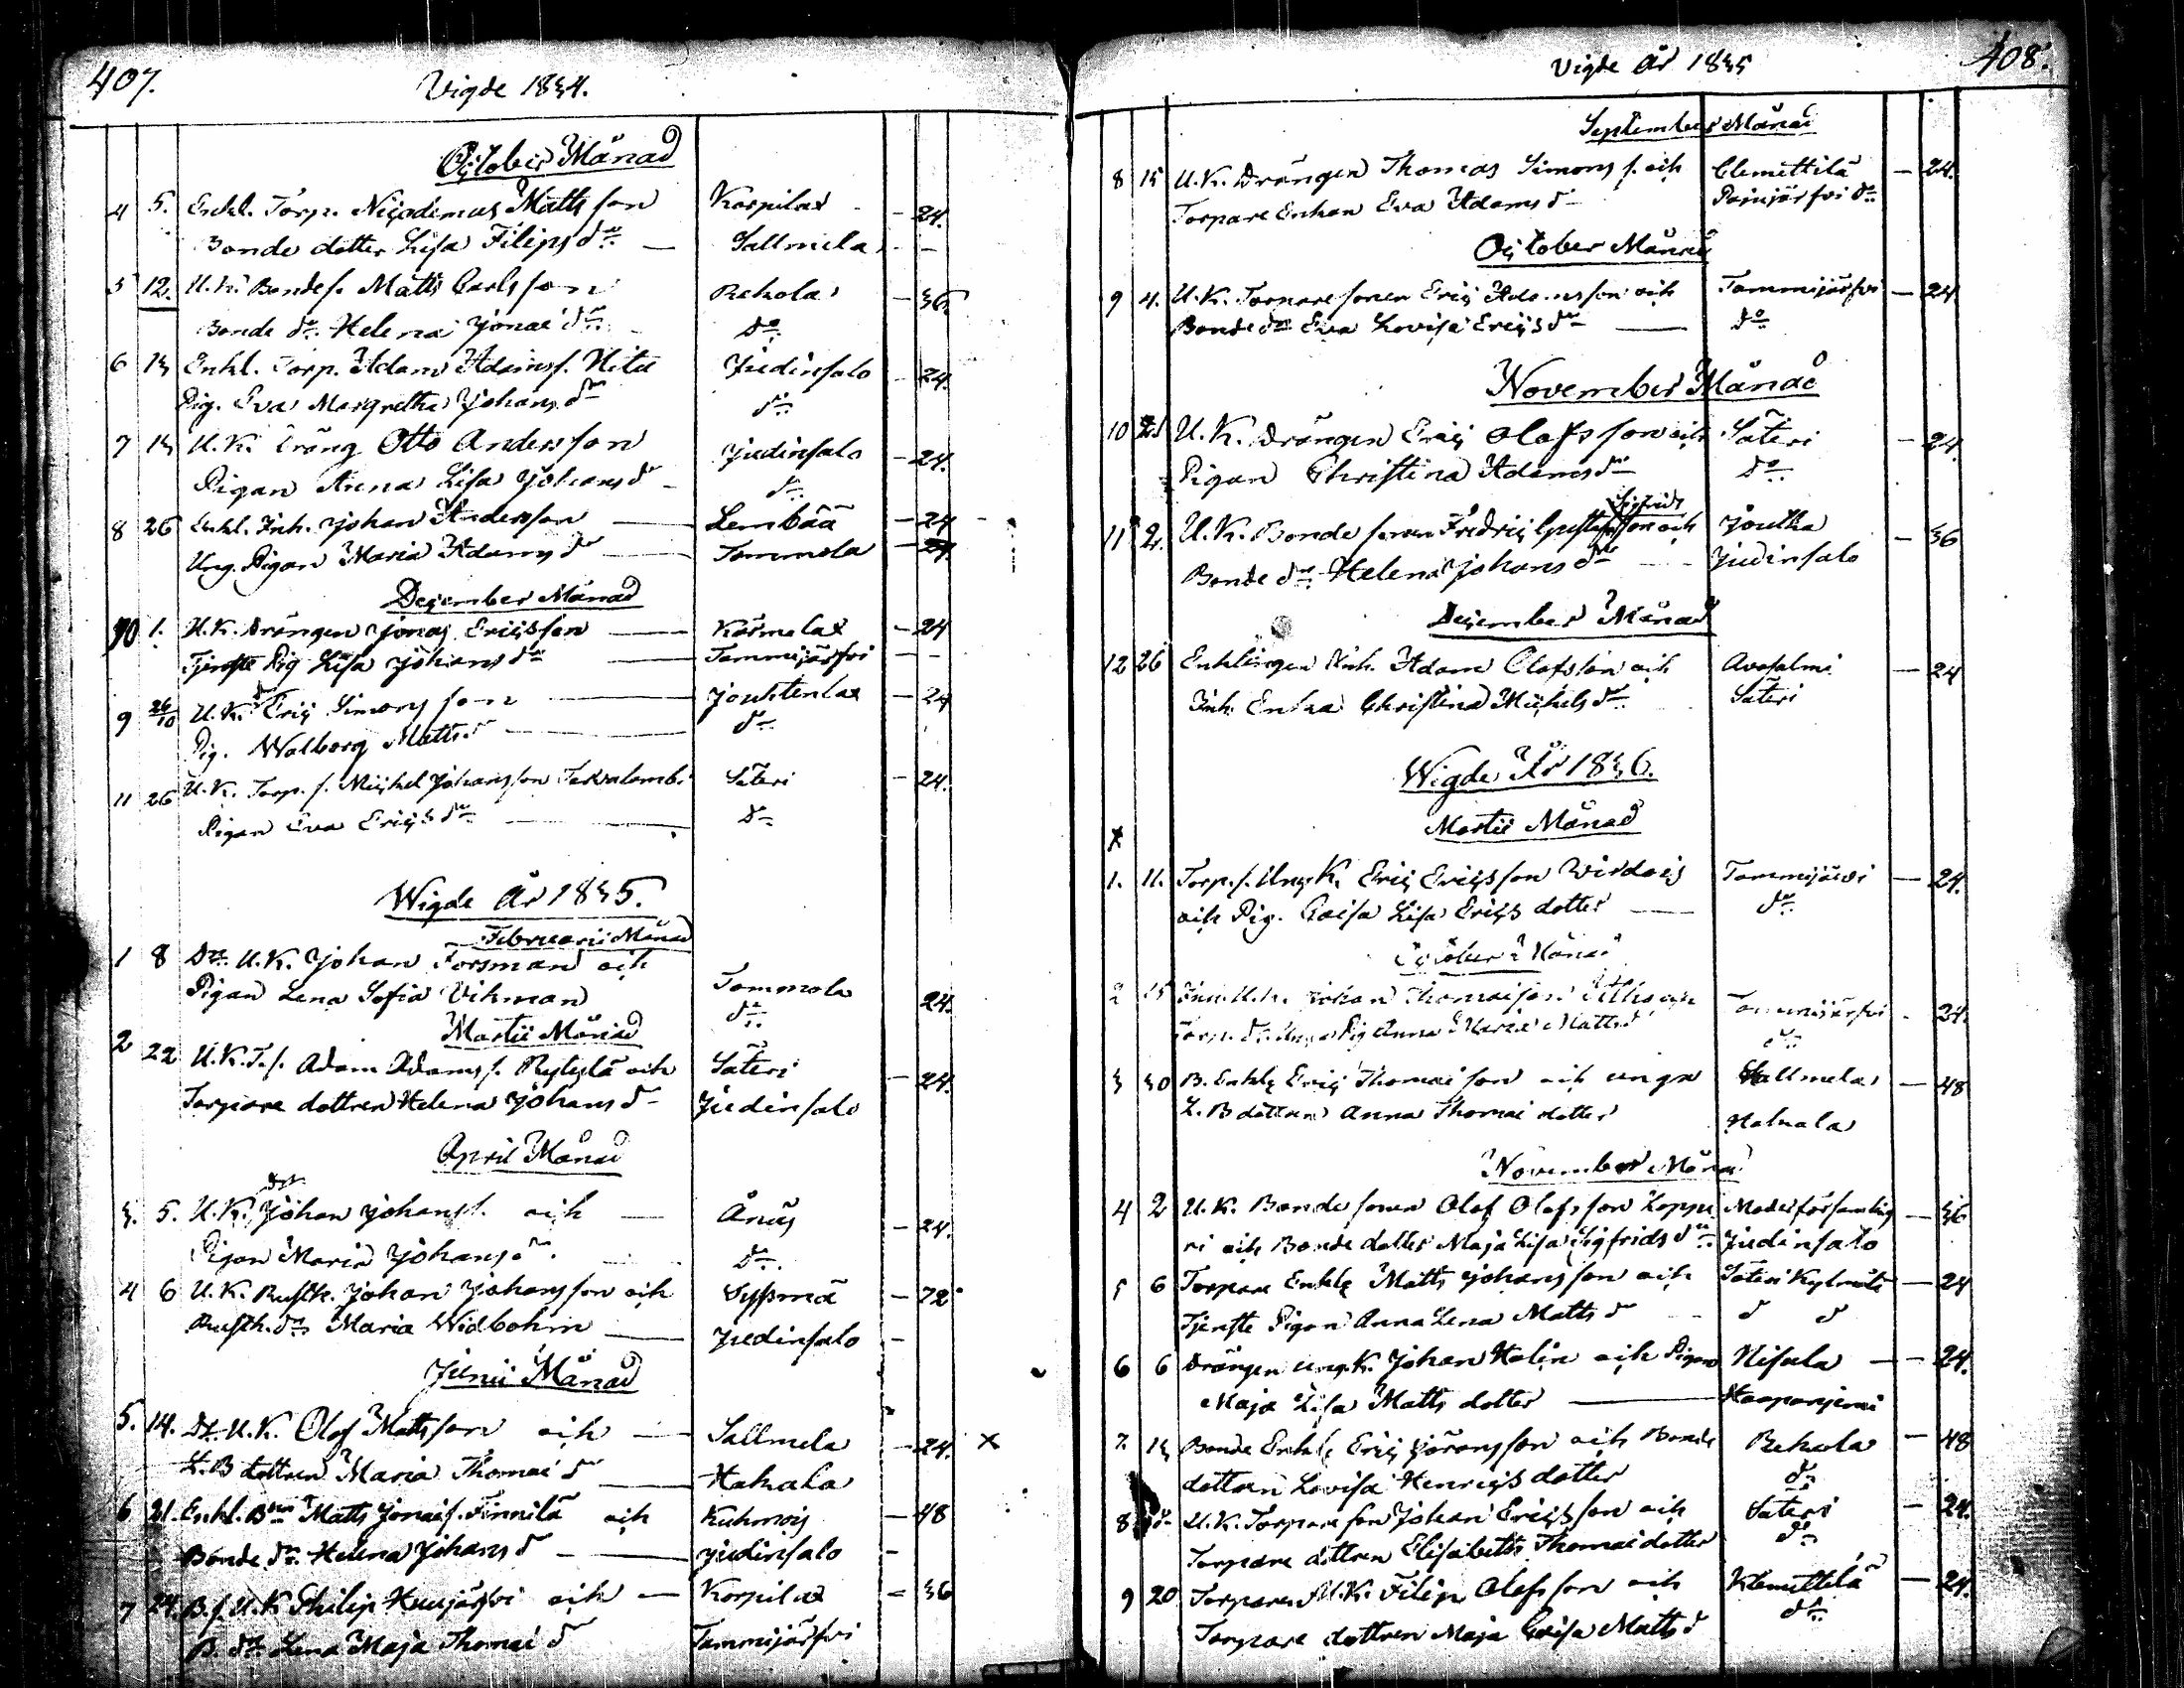 407.
Vigde 1834.
October Månad
4 5. Enkl. Torp. Nicodemus Mattsson Korpilax - 24.
Bonde dotter Lisa Filips dr — Sallmela -
5 12. U.K. Bondes. Matts Carlsson Rekola - 36.
Bonde dr. Helena Jonae dr. do
6 13 Enkl. Torp. Adam Adamss. Judinsalo - 24.
Pig. Eva Margretha Johans dr do
7 13 U.K. Dräng Otto Andersson Judinsalo - 24.
Pigan Anna Lisa Johans d - do
8 26 Enkl. Inh. Johan Andersson — Lembää - 24 -
Ung. Pigan Maria Adams d — Tommola - 24.
December Månad
10 1. U.K. Drängen Jonas Ericsson — Kärmelax - 24
Tjenste Pig Lisa Johans dr — Tammijärfvi - -
9 26/10 U.K. d Eric Simonsson — Jouhtenlax - 24
Pig. Walborg Matts d — do
11 26 U.K. Torp. s. Michel Johansson Säteri - 24.
Pigan Eva Erics dr — do
Wigde År 1835.
Februarii Månad
1 8 Dr. U.K. Johan Forsman och
Pigan Lena Sofia Vikman Tommola 24.
do
Martii Månad
2 22 U.K.T.s. Adam Adams s. och Säteri - 24.
Torpare dottren Helena Johans d - Judinsalo
April Månad
3. 5. U.K. Dr. Johan Johanss. och — - 24.
Pigan Maria Johans dr. do
4 6 U.K. Rusth. Johan Johansson och Sysmä - 72
Rusth. dr Maria Widbohm — Judinsalo -
Junii Månad
5. 14. Dr. U.K. Olof Mattsson och — Sallmela - 24. x
L.B dottren Maria Thomae d — Hakala
6 21. Enkl. Bon Matts Jonaes. Finnilä och Kuhmois - 48
Bonde dr. Helena Johans d — Judinsalo -
7 24. B.s. U.K Philip och — Korpilax - 36
B. dr. Lena Maja Thomae d Tammijärfvi
Vigde år 1835
408.
September Månad
8 15 U.K. Drängen Thomas Simons s. och Clemettilä - 24.
Torpare Enkan Eva Adams d - Päinjärfvi do
October Månad
9 4. U.K. Torpare sonen Eric Adamsson och Tammijärfvi - 24
Bonde dr Eva Lovisa Erics dr — do
November Månad
10 U.K. Drängen Eric Olofsson och Säteri - 24.
Pigan Christina Adams dr do
Sigfrids
11 2. U.K. Bonde sonen Fredric Gustafsson och Joutka - 36
Bonde dr. Helena Johans dr - Judinsalo
December Månad
12 26 Enklingen Inh. Adam Olofsson och Avosalmi - 24
Inh. Enka Christina Michels dr Säteri
Wigde År 1836.
Martii Månad
x
1. 11. Torp. s. Ung K. Eric Ericsson Wirdois Tammijärvi - 24.
och Pig. Caisa Lisa Erics dotter — do
October Månad
2 15 Inh. U.K. Johan Thomaeson Tammijärfvi - 24.
Torp. dr. Unga Pig Anna Maria Matts d do
3 30 B. Enkle Eric Thomaeson och unga Sallmela - 48
L.B dottren Anna Thomae dotter Hakala
November Månad
4 2 U.K. Bonde sonen Olof Olofsson Koppe Moderförsamling - 36
ri och Bonde dotter Maja Lisa Sigfrids dr. Judinsalo
5 6 Torpare Enkle Matts Johansson och Säteri - 24
Tjenste Pigan Anna Lena Matts d - d d
6 6 Drängen ung K. Johan Holin och Pigan Nisula - 24.
Maja Lisa Matts dotter —
7. 13 Bonde Enkle Eric Göransson och Bonde Rekola - 48
dottren Lovisa Henrics dotter do
8 d- U.K. Torpare son Johan Ericsson och Säteri - 24.
Torpare dottren Elisabeth Thomae dotter do
9 20 Torparen U.K. Filip Olofsson och Klemettilä - 24.
Torpare dottren Maja Caisa Matts d do